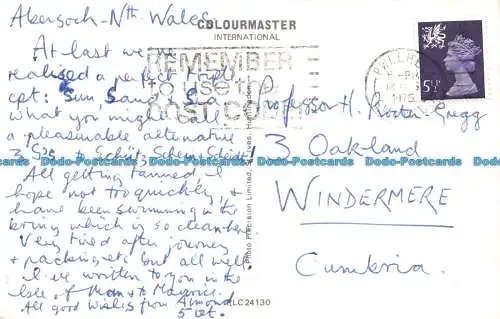 Abersoch - Nth Wales.
COLOURMASTER
INTERNATIONAL
At last we've
realised a perfect triple
cpt: Sun, Sand, Sea
what you might call
a pleasurable alternative
to
All getting tanned, I
hope not too quickly, &
have been swimming in the
briny which is so clean here
Very tired after journey
& packing etc but all well.
I've written to you in the
Isle of Man &
All good wishes from
REMEMBER
to use the
POST CODE
PWLLHELI
PM
1975
5½P
Professor H.
3 Oakland
WINDERMERE
Cumbria.
Photo Precision Limited, St. Ives, Huntingdon
LC24130
Dodo-Postcards Dodo-Postcards Dodo-Postcards Dodo-Postcards Dodo-Postcards